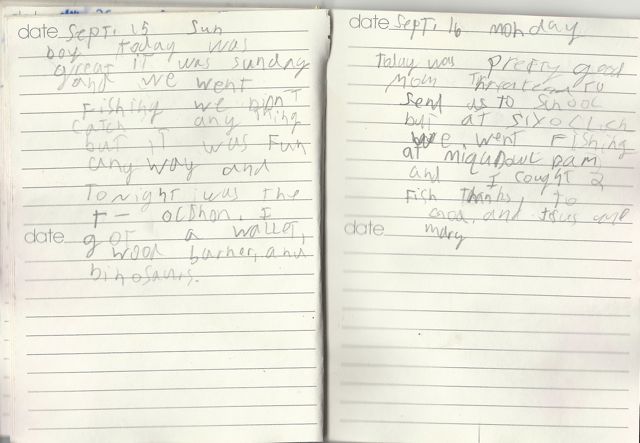 date Sept. 15 Sun
boy today was
great it was sunday
and we went
Fishing we bibn't
catch any thing
but it was Fun
any way and
Tonight was the
T- ocbhon. I
got a wallet,
date
wood barner, and
binosaurs.
date Sept. 16 monday
Today was pretty good
Mom Threatend To
Send us to School
but at Sixoclich
we went Fishing
at miquabuct Dam
and I cought 2
Fish Thanks, To
God, and Jesus and
date mary